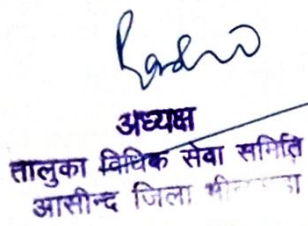 अध्यक्ष
तालुका विधिक सेवा समिति
आसीन्द जिला